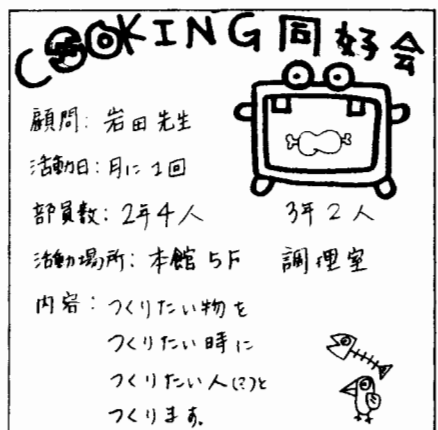 COOKING同好会
顧問：岩田先生
活動日：月に1回
部員数：2年4人　3年2人
活動場所：本館5F　調理室
内容：つくりたい物を
つくりたい時に
つくりたい人(?)と
つくります。